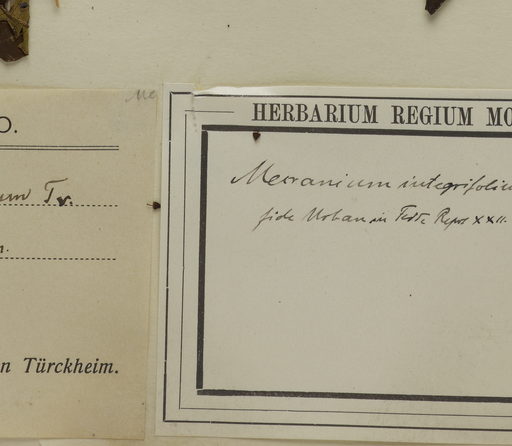 O.
Tr.
n Türckheim.
HERBARIUM REGIUM MO
Mecranium integrifoliu
fide Urban in Fedde Repert XXII.